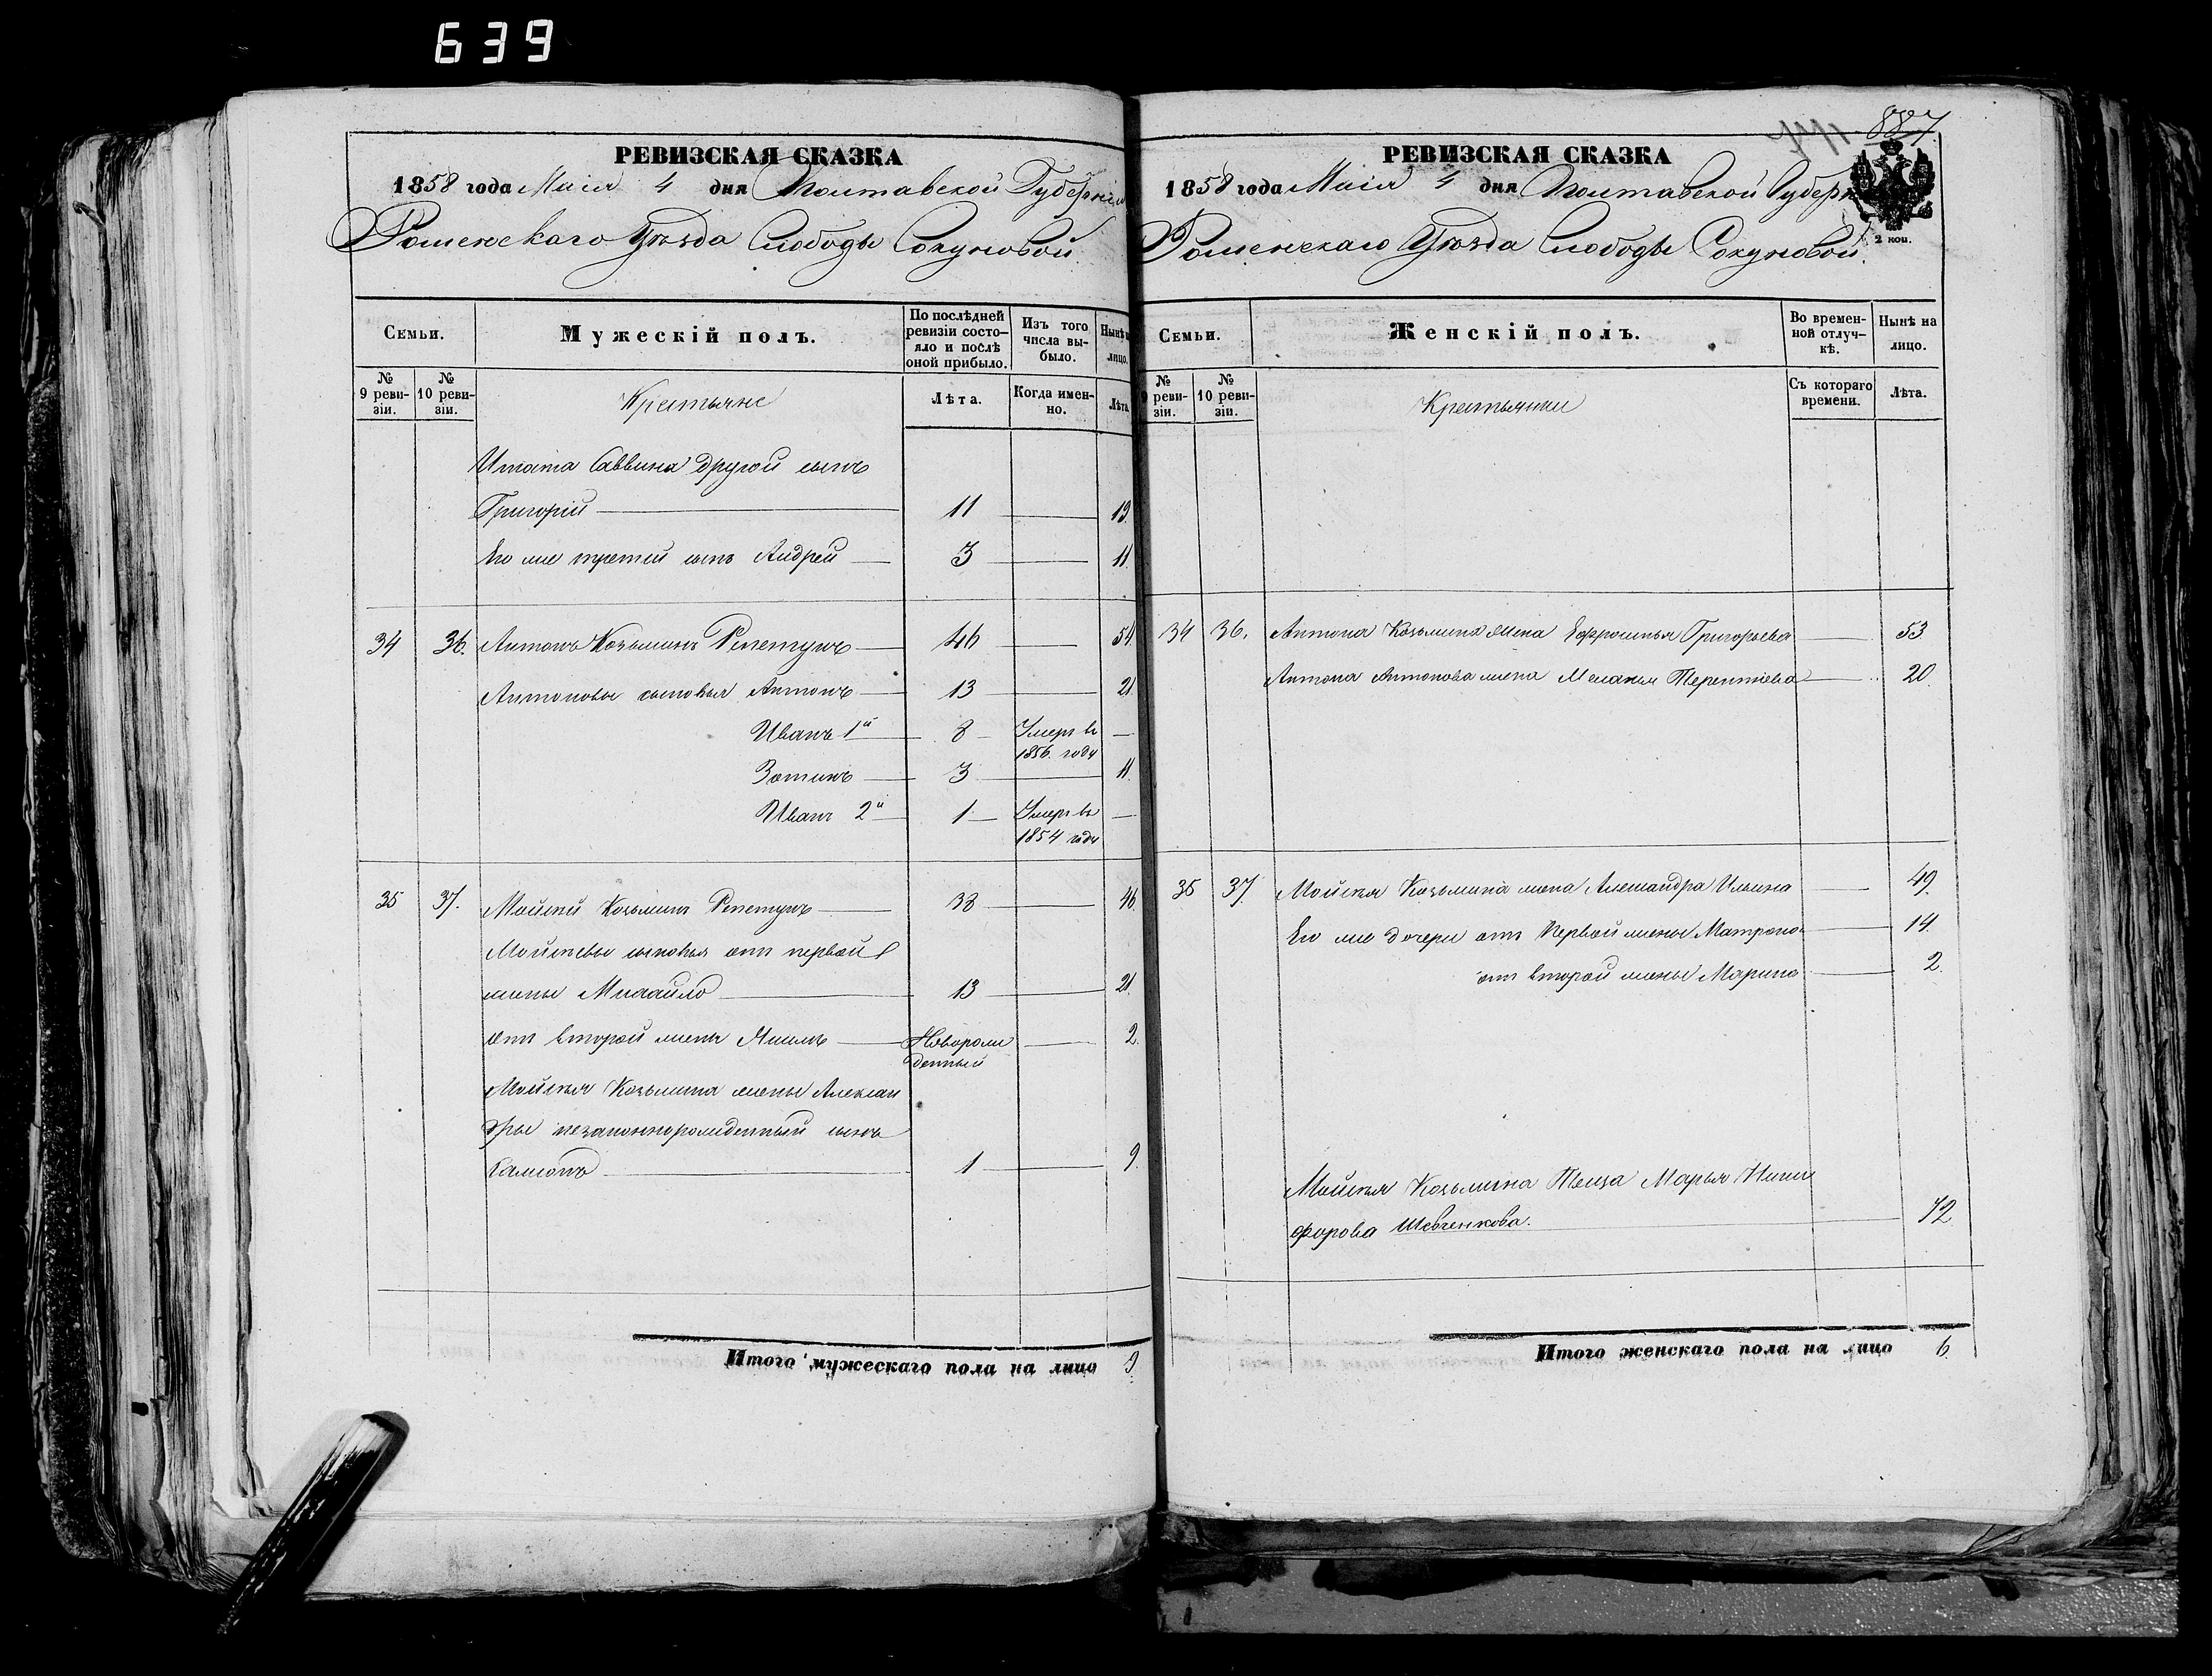 639
887
РЕВИЗСКАЯ СКАЗКА
1858 года Маія 4 дня Полтавской Губерніи
Роменскаго Уѣзда Слободы Сакуновой
Семьи.
Мужескій полъ.
По послѣдней ревизіи состояло и послѣ оной прибыло.
Изъ того числа выбыло.
Нынѣ на лицо.
№ 9 ревизіи.
№ 10 ревизіи.
Крестьяне
Лѣта.
Когда именно.
Лѣта
Савина другой сынъ
Григорій 11 19.
Его же третій сынъ Андрей 3 11.
34 36. Антонъ Козьминъ Репетунъ 46 54.
Антоновы сыновья Антонъ 13 21.
Иванъ 1й 8 Умеръ въ
1856. году
Зотикъ 3 11.
Иванъ 2й 1 Умеръ въ
1854 году
35 37. Мойсей Козьминъ Репетунъ 38 46.
Мойсеевы сыновья отъ первой
жены Михайло 13 21.
отъ второй жены Новорож 2.
денный
Мойсея Козьмина жены Алексан
дры незаконнорожденный сынъ
Самсонъ 1 9.
Итого мужескаго пола на лицо 9.
РЕВИЗСКАЯ СКАЗКА
1858 года Маія 4 дня Полтавской Губерн
Роменскаго Уѣзда Слободы Сакуновой.
2 коп.
Семьи.
Женскій полъ.
Во временной отлучкѣ.
Нынѣ на лицо.
№ 9 ревизіи.
№ 10 ревизіи.
Крестьянки
Съ котораго времени.
Лѣта.
34 36. Антона Козьмина жена Ефросинья Григорьева 53
Антона Антонова жена Меланья Терентіева 20.
35 37. Мойсея Козьмина жена Александра Ильина 49.
Его же дочери отъ первой жены Матрона 14.
отъ второй жены Марина 2.
Мойсея Козьмина Теща Марья Ники
форова Шевченкова. 72
Итого женскаго пола на лицо 6.